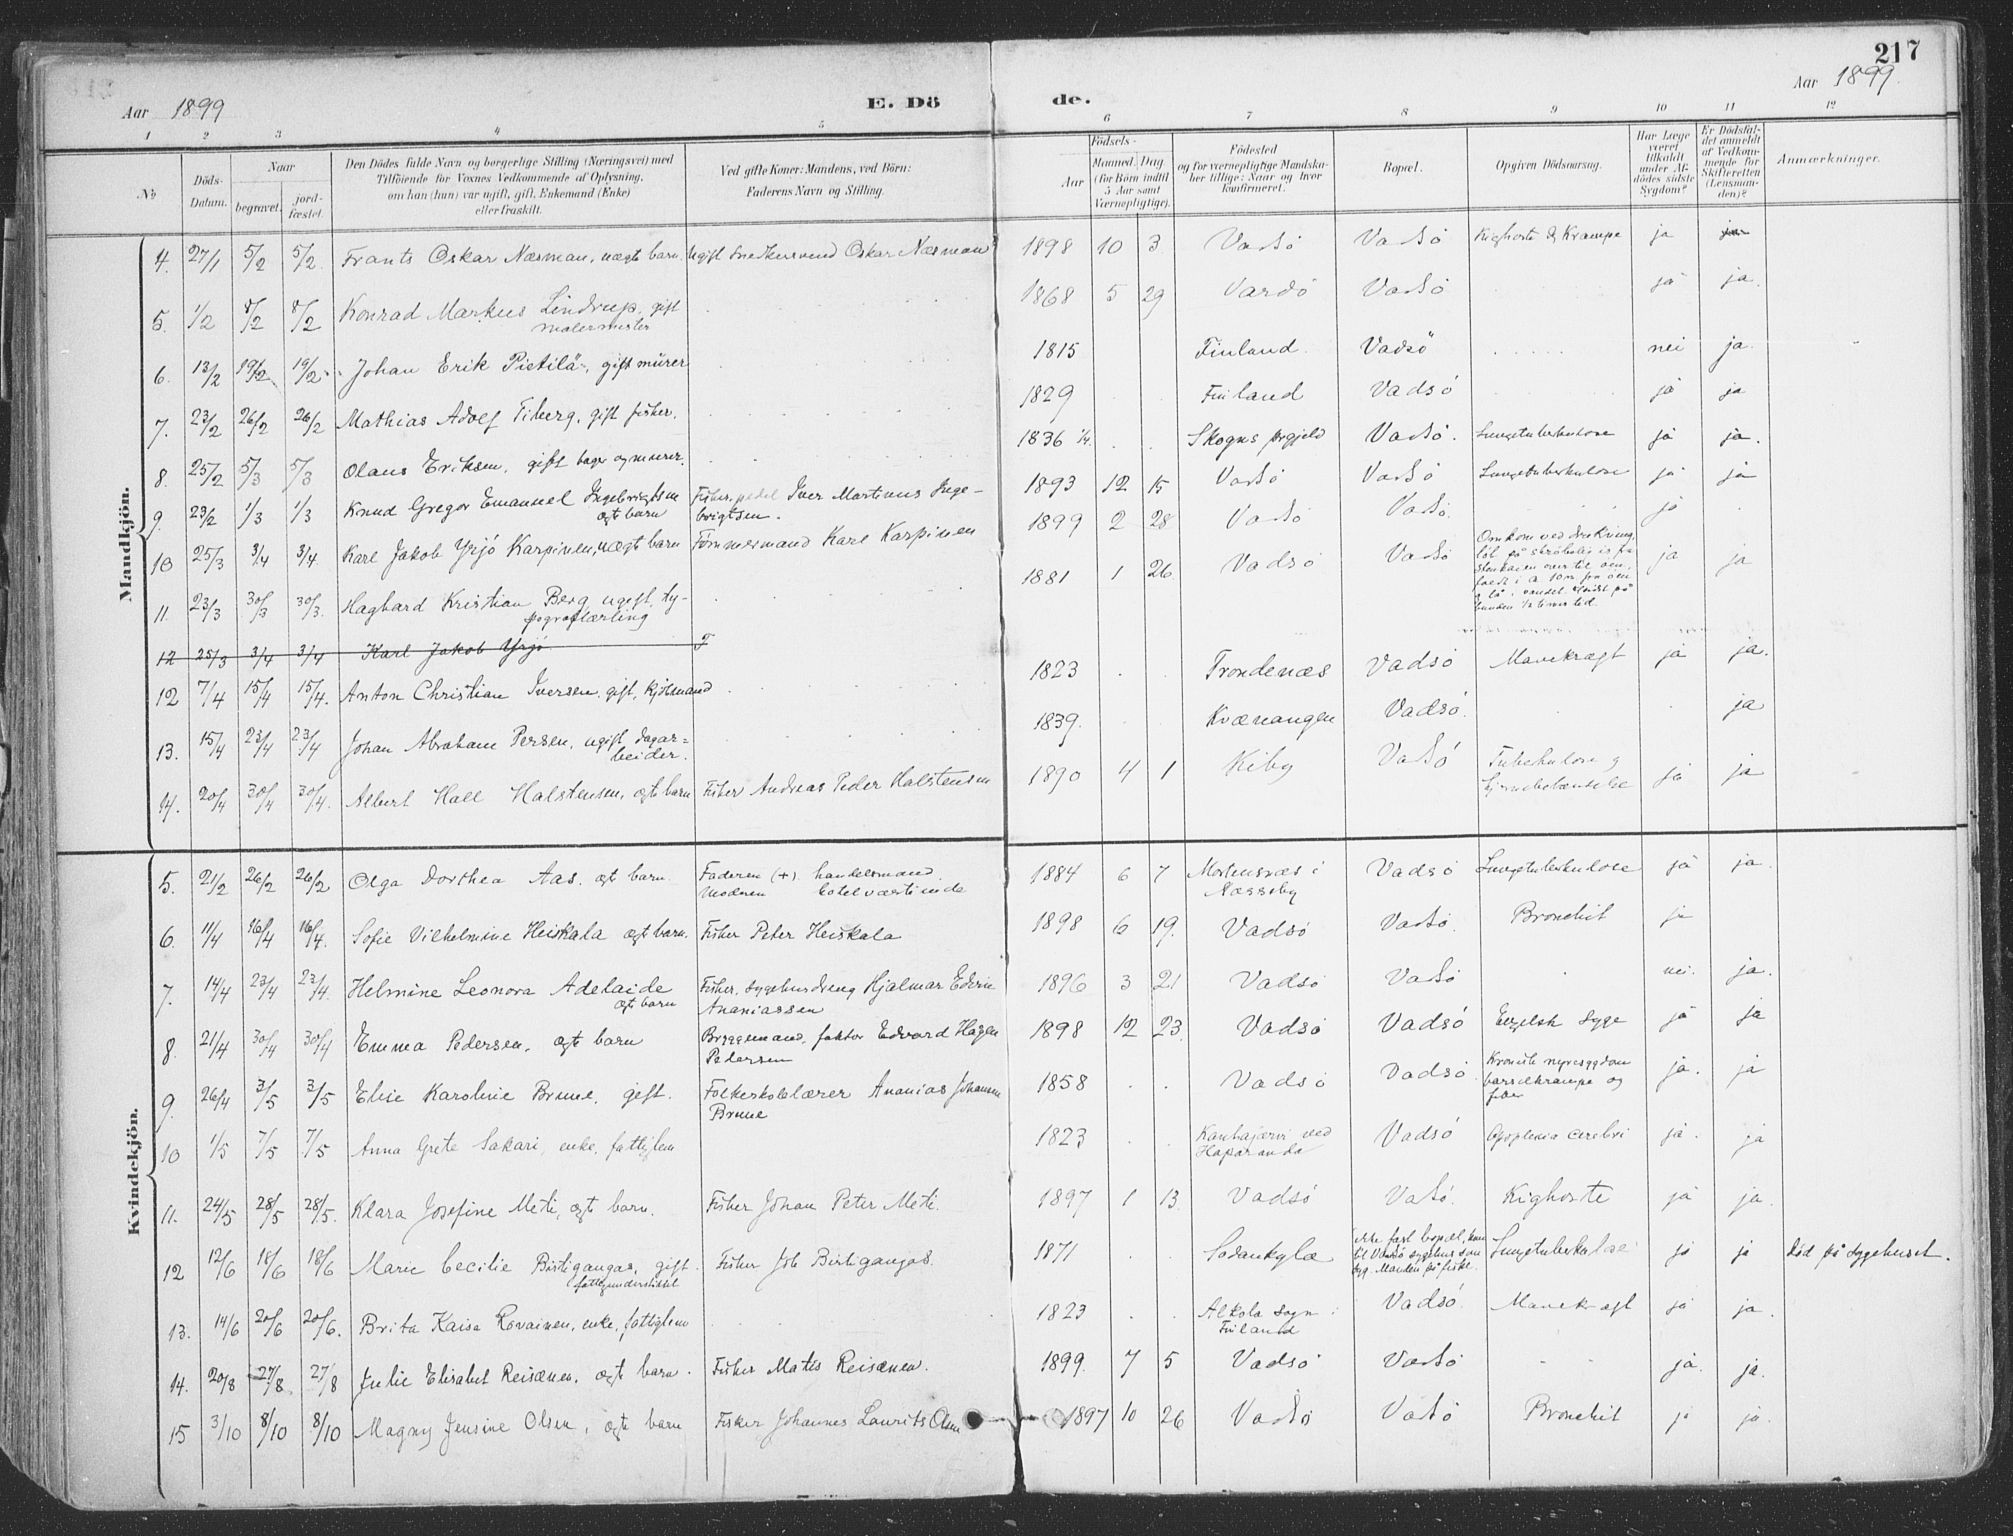 217
Aar 1899
E. Dö
de.
Aar 1899.
1 2 3 4 5 6 7 8 9 10 11 12
No
Döds-Datum.
Naar
begravet.
jord-fæstet.
Den Dödes fulde Navn og borgerlige Stilling (Næringsvei) med
Tilföiende for Voxnes Vedkommende af Oplysning,
om han (hun) var ugift, gift, Enkemand (Enke)
eller fraskilt.
Ved gifte Koner: Mandens, ved Börn:
Faderens Navn og Stilling.
Födsels-
Aar
Maaned. Dag
(for Börn indtil
5 Aar samt
Værnepligtige).
Födested
og for værnepligtige Mandska-
ber tillige: Naar og hvor
konfirmeret.
Bopæl.
Opgiven Dödsaarsag.
Har Læge
været
tilkaldt
under Af-
dödes sidste
Sygdom?
Er Dödsfal-
det anmeldt
af Vedkom-
mende for
Skifteretten
(Lensman-
den)?
Anmærkninger.
Mandkjön.
4. 27/1 5/2 5/2. Frants Oskar Næsman, uægte barn. Ugift Snedkersvend Oskar Næsman 1898 10 3 Vadsö Vadsö Kighoste og Krampe ja ja
5. 1/2 8/2 8/2 Konrad Markus Lindrup, gift
malermester 1868 5 29 Vardö Vadsö ja ja.
6. 13/2 19/2 19/2 Johan Erik Pietilä, gift murer 1815 Finland. Vadsö nei ja.
7. 23/2 26/2 26/2 Mathias Adolf Tiberg, gift fisher. 1829 Finland Vadsö ja ja
8. 25/2 5/3 5/3 Olaus Eriksen, gift bager og murer. 1836 1/4. Skogns prgjeld Vadsö. Lungetuberkulose ja ja.
9. 23/2 1/3 1/3 Knud Gregor Emanuel Ingebrigtsen
ægte barn Fisher, pedel Iver Martinus Inge-
brigtsen. 1893 12 15 Vadsö Vadsö Lungetuberkulose ja ja
10 25/3 3/4 3/4. Karl Jakob Yrjö Karpinen, uægte barn Tømmermand Karl Karpinen 1899 2 28 Vadsö Vadsö. ja
11. 23/3 30/3 30/3. Hagbard Kristian Berg, ugift, ty-
pograflærling 1881 1 26 Vadsö Vadsö Omkom ved
ja ja
12 25/3 3/4 3/4 Karl Jakob Yrjö T
12 7/4 15/4 15/4. Anton Christian Iversen, gift, kjöbmand 1823 Trondenæs Vadsö Mavekræft ja ja.
13. 15/4 23/4 23/4 Johan Abraham Persen, ugift dagar=
beider. 1839. Kvænangen Vadsö. ja
14. 20/4 30/4 30/4. Albert Hall Halstensen, ægte barn Fisher Andreas Peder Halstensen 1890 4 1 Kiby Vadsö Tuberkulose og
hjernebetændelse ja ja
Kvindekjön.
5. 21/2 26/2 26/2 Olga Dorthea Aas, ægte barn. Faderen (+) handelsmand,
Moderen hotelværtinde 1884 6 7 Mortensnæs i
Næsseby Vadsö Lungetuberkulose ja ja.
6. 11/4 16/4 16/4. Sofie Vilhelmine Heiskala ægte barn. Fisher Peter Heiskala 1898 6 19. Vadsö Vadsö. Bronchit ja
7. 14/4 23/4 23/4. Helmine Leonora Adelaide
ægte barn Fisher, sygehusdreng Hjalmar Edvin
Ananiassen 1896 3 21 Vadsö Vadsö nei. ja.
8. 21/4 30/4 30/4 Emma Pedersen, ægte barn Bryggemand, faktor Edvard Hagen
Pedersen 1898 12 23. Vadsö Vadsö Engelsk syge ja ja
9. 26/4 3/5 3/5 Elise Karoline Brune, gift. Folkeskolelærer Ananias Johansen
Brune 1858 Vadsö Vadsö. Kronisk nyresygdom
barselkrampe og
feber ja. ja
10 1/5 7/5 7/5 Anna Grete Sakari, enke, fattiglem 1823 Kanhajærvi ved
Haparanda Vadsö Apoplexia cerebri ja. ja
11. 24/5 28/5 28/5. Klara Josefine Meti, ægte barn. Fisher Johan Peter Meti. 1897 1 13. Vadsö Vadsö. Kighoste ja ja.
12 12/6 18/6 18/6 Marie Cecilie Birtigangas, gift.
fattigunderstøttet Fisher Job Birtigangas. 1871 Sodankylæ ikke fast bopæl, kom
til Vadsö sygehus som
syg. Manden på fiske. Lungetuberkulose ja ja Död på sygehuset.
13. 14/6 20/6 20/6. Brita Kaisa Rovainen, enke, fattiglem 1823 Alkola sogn i
Finland Vadsö. Mavekræft ja ja.
14. 20/8 27/8 27/8 Julie Elisabet Reisænen, ægte barn. Fisher Matis Reisænen. 1899. 7 5 Vadsö Vadsö ja. ja.
15 3/10 8/10 8/10 Magny Jensine Olsen, ægte barn Fisker Johannes Laurits Olsen 1897 10 26 Vadsö Vadsö Bronchit ja ja.